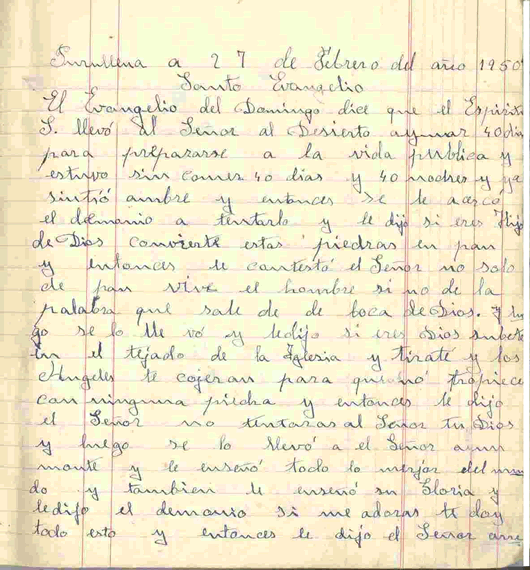 Purullena a 27 de Febrero del año 1950
Santo Evangelio
El Evangelio del Domingo dice que el Espiritu
S. llevó al Señor al Desierto aymar 40 dias
para prepararse a la vida publica y
estuvo sin comer 40 dias y 40 noches y ya
sintió ambre y entonces se le acercó
el demonio a tentarlo y le dijo si eres Hijo
de Dios convierte estas piedras en pan
y entonces le contestó el Señor no solo
de pan vive el hombre si no de la
palabra que sale de de boca de Dios. y lue
go se lo lle vó y ledijo si eres Dios subete
en el tejado de la Iglesia y tirate y los
Angeles te cojeran para que no tropiece
con ninguna piedra y entonces le dijo
el Señor no tentaras al Señor tu Dios
y luego se lo llevó a el Señor aun
monte y le enseñó todo lo mejor del mun
do y tambien le enseñó su Gloria y
ledijo el demonio si me adoras te doy
todo esto y entonces le dijo el Señor